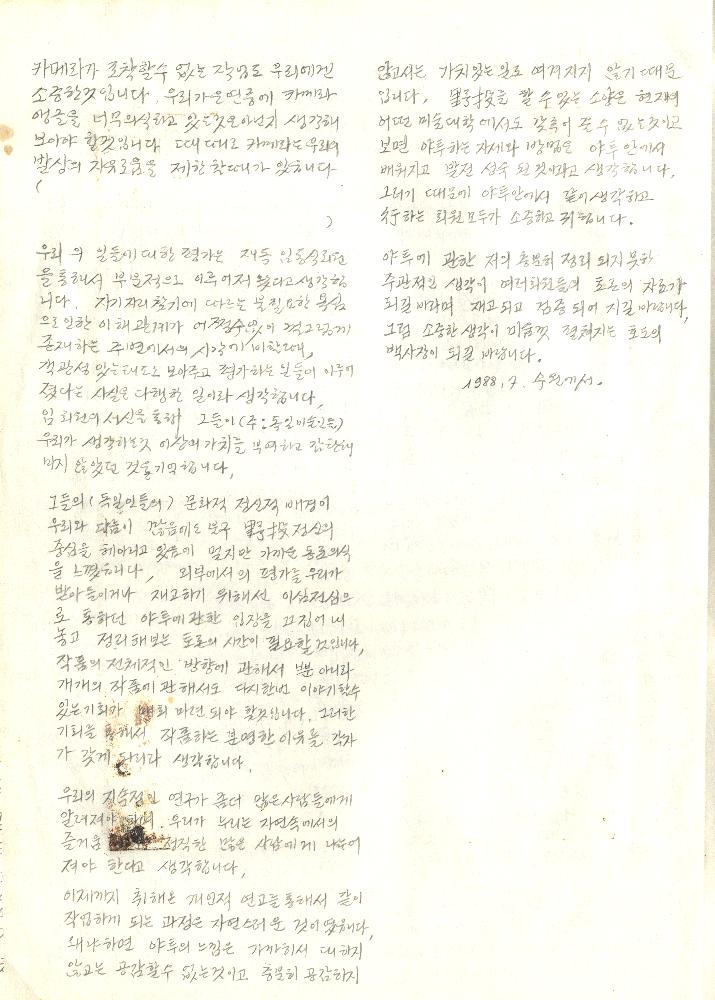 카메라가 포착할수 없는 작업도 우리에겐
소중한것입니다. 우리가은연중에 카메라
앵글을 너무의식하고 있는것은아닌지 생각해
보아야 할것입니다 때때로 카메라는우리의
발상의 자유로움을 제한할때가 있습니다
(
)
우리 의 일들에대한 평가는
을통해서 부분적으로 이루어져 왔다고생각합
니다. 자기자리찾기에 따르는 불필요한 욕심
으로인한 이해관계가 어쩔수없이
존재하는 주변에서의 시각에 비한다면,
객관성 있는태도로 보아주고 평가하는 일들이 이루어
졌다는 사실은 다행한 일이라 생각합니다.
임 회원의 서신을통한 그들이(주:독일미술인들)
우리가 생각하는것 이상의가치를 부여하고 감탄해
마지 않았던 것을기억합니다.
그들의(독일인들의) 문화적 정신적 배경이
우리와 다름이 많음에도 불구 野投정신의
중심을 헤아리고 있음에 멀지만 가까운 동료의식
을 느꼈읍니다. 외부에서의 평가를 우리가
받아들이거나 재고하기 위해선 이심전심으
로 통하던 야투에관한 입장을 끄집어 내
놓고 정리해보는 토론의 시간이 필요할것입니다.
작품의 전체적인 방향에 관해서 뿐 아니라
개개의 작품에관해서도 다시한번 이야기할수
있는기회가 마련되야 할것입니다. 그러한
기회를 통해서 작품하는 분명한이유를 각자
가 갖게 되리라 생각합니다.
우리의 지속적인 연구가 좀더 많은사람들에게
알려져야 하며. 우리가 누리는 자연속에서의
즐거움 정직한 많은 사람에게 나누어
져야 한다고 생각합니다.
이제까지 취해온 개인적 연고를통해서 같이
작업하게 되는 과정은 자연스러운 것이였읍니다.
왜냐하면 야투의 느낌은 가까히서 대하지
않고는 공감할수 없는것이고 충분히 공감하지
않고서는 가치있는일로 여겨지지 않기 때문
입니다. 野投를 할 수있는 소양은 현재의
어떤 미술대학 에서도 갈쳐줄 수 없는것이고
보면 야투하는자세나 방법은 야투안에서
배워지고 발전 성숙 된것이라고 생각합니다.
그러기 때문에 야투안에서 같이생각하고
行하는 회원모두가 소중하고 귀합니다.
야투에 관한 저의 충분히 정리 되지 못한
주관적인 생각이 여러회원들의 토론의 자료가
되길바라며 재고되고 검증 되어 지길 바랍니다.
그럼 소중한생각이 마음껏 펼쳐지는 토론의
백사장이 되길 바랍니다.
1988. 7. 수원에서.